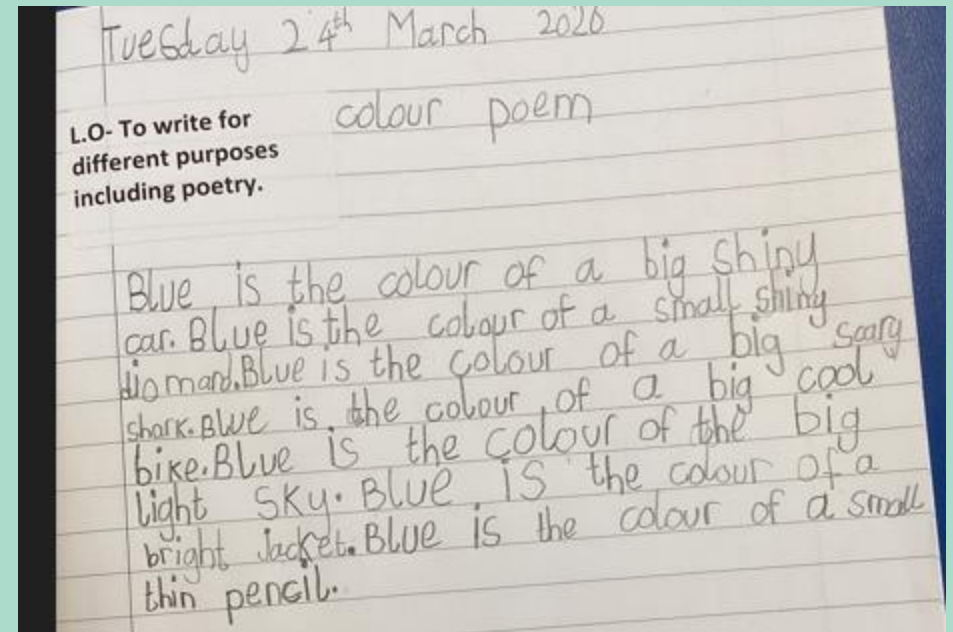 Tuesday 24th March 2020
colour poem
L.O- To write for
different purposes
including poetry.
Blue is the colour of a big shiny
car. Blue is the colour of a small shiny
diomand. Blue is the colour of a big scary
shark. Blue is the colour of a big cool
bike. Blue is the colour of the big
light sky. Blue is the colour of a
bright jacket. Blue is the colour of a small
thin pencil.